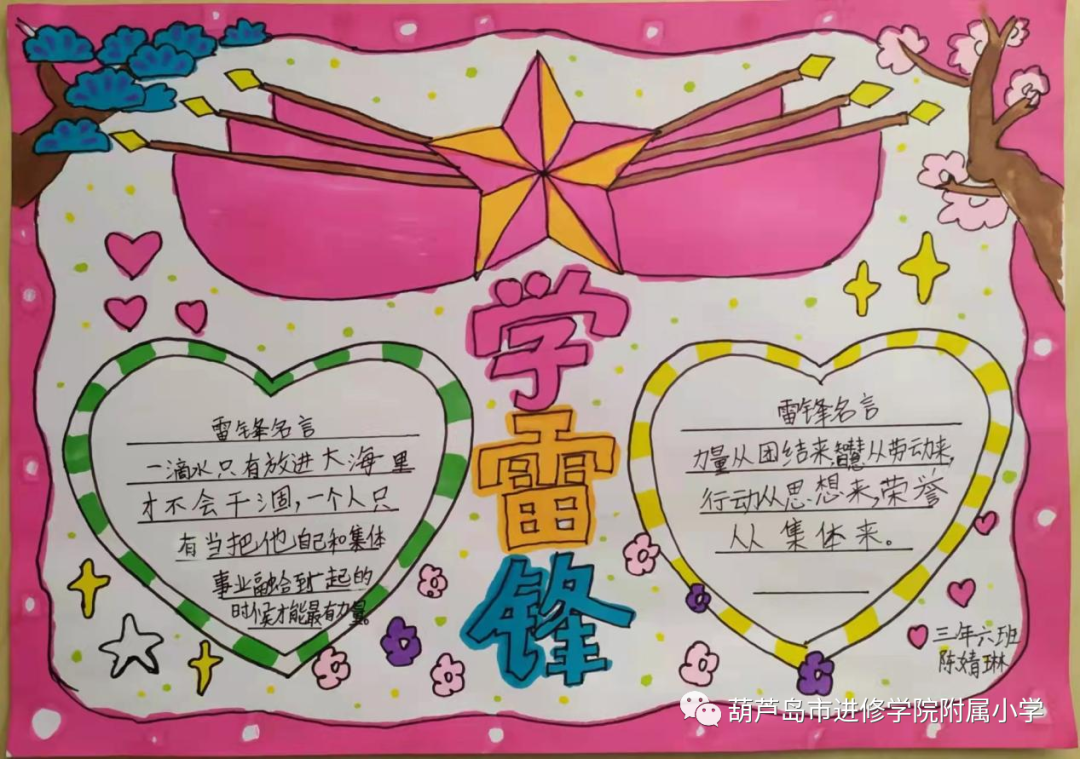 学
雷
锋
雷锋名言
一滴水只有放进大海里
才不会干涸,一个人只
有当把他自己和集体
事业融给到一起的
时候才能最有力量。
雷锋名言
力量从团结来,智慧从劳动来,
行动从思想来,荣誉
从集体来。
三年六班
陈婧琳
葫芦岛市进修学院附属小学